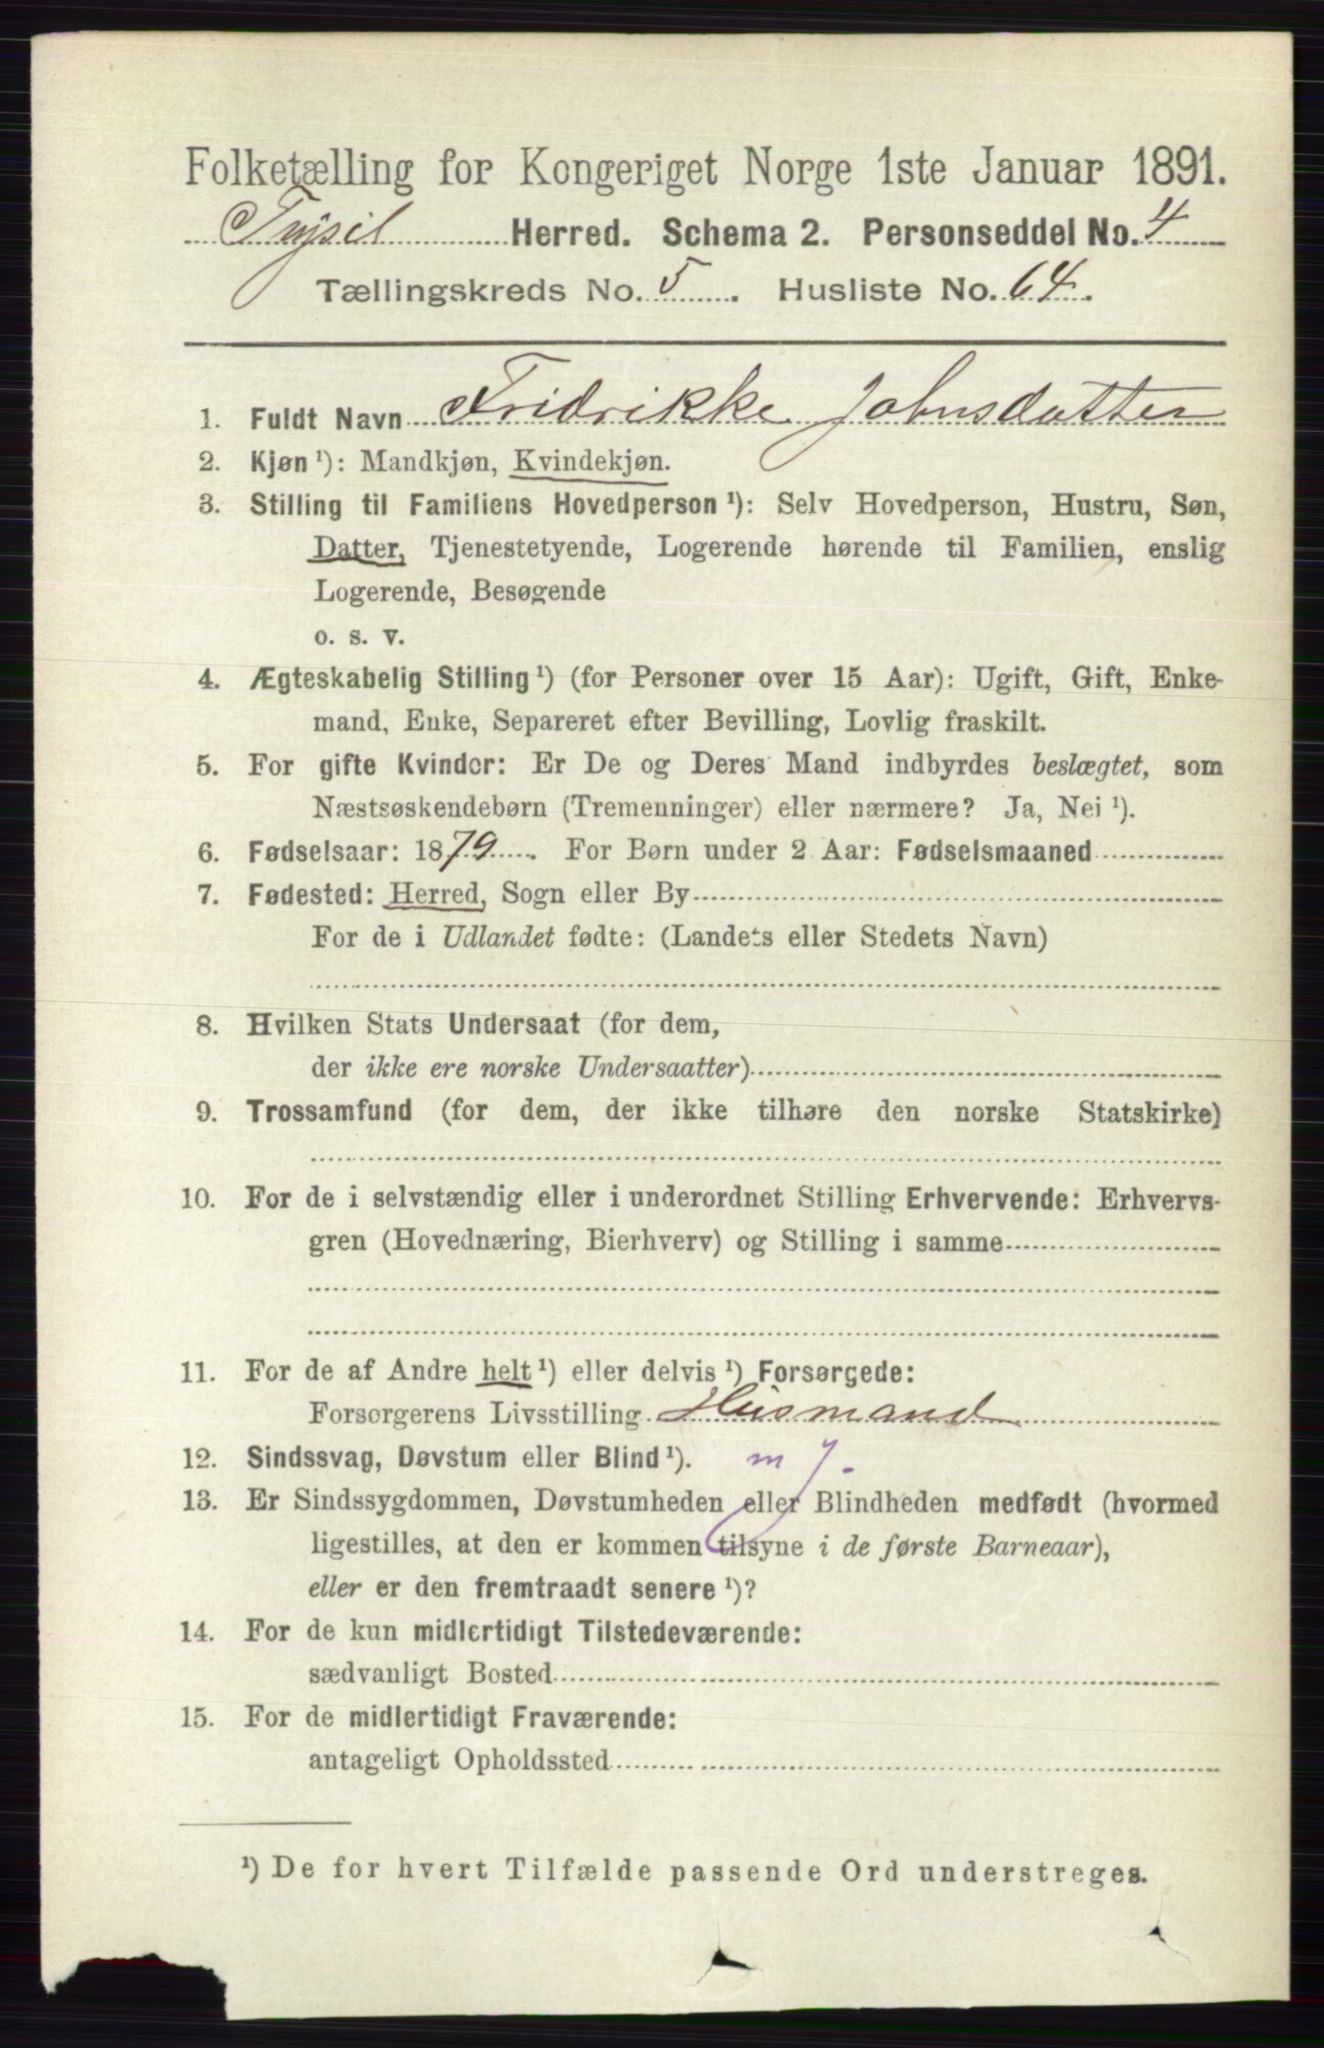 Folketælling for Kongeriget Norge 1ste Januar 1891.
Trysil Herred. Schema 2. Personseddel No. 4
Tællingskreds No. 5. Husliste No. 64.
1. Fuldt Navn Fridrikke Johnsdatter
2. Kjøn ¹): Mandkjøn, Kvindekjøn.
3. Stilling til Familiens Hovedperson ¹): Selv Hovedperson, Hustru, Søn,
Datter, Tjenestetyende, Logerende hørende til Familien, enslig
Logerende, Besøgende
o. s. v.
4. Ægteskabelig Stilling ¹) (for Personer over 15 Aar): Ugift, Gift, Enke-
mand, Enke, Separeret efter Bevilling, Lovlig fraskilt.
5. For gifte Kvinder: Er De og Deres Mand indbyrdes beslægtet, som
Næstsøskendebørn (Tremenninger) eller nærmere? Ja, Nei ¹).
6. Fødselsaar: 1879. For Børn under 2 Aar: Fødselsmaaned
7. Fødested: Herred, Sogn eller By
For de i Udlandet fødte: (Landets eller Stedets Navn)
8. Hvilken Stats Undersaat (for dem,
der ikke ere norske Undersaatter)
9. Trossamfund (for dem, der ikke tilhøre den norske Statskirke)
10. For de i selvstændig eller i underordnet Stilling Erhvervende: Erhvervs-
gren (Hovednæring, Bierhverv) og Stilling i samme
11. For de af Andre helt ¹) eller delvis ¹) Forsørgede:
Forsorgerens Livsstilling Husmand
12. Sindssvag, Døvstum eller Blind ¹). m J.
13. Er Sindssygdommen, Døvstumheden eller Blindheden medfødt (hvormed
ligestilles, at den er kommen tilsyne i de første Barneaar),
eller er den fremtraadt senere ¹)?
14. For de kun midlertidigt Tilstedeværende:
sædvanligt Bosted
15. For de midlertidigt Fraværende:
antageligt Opholdssted
¹) De for hvert Tilfælde passende Ord understreges.